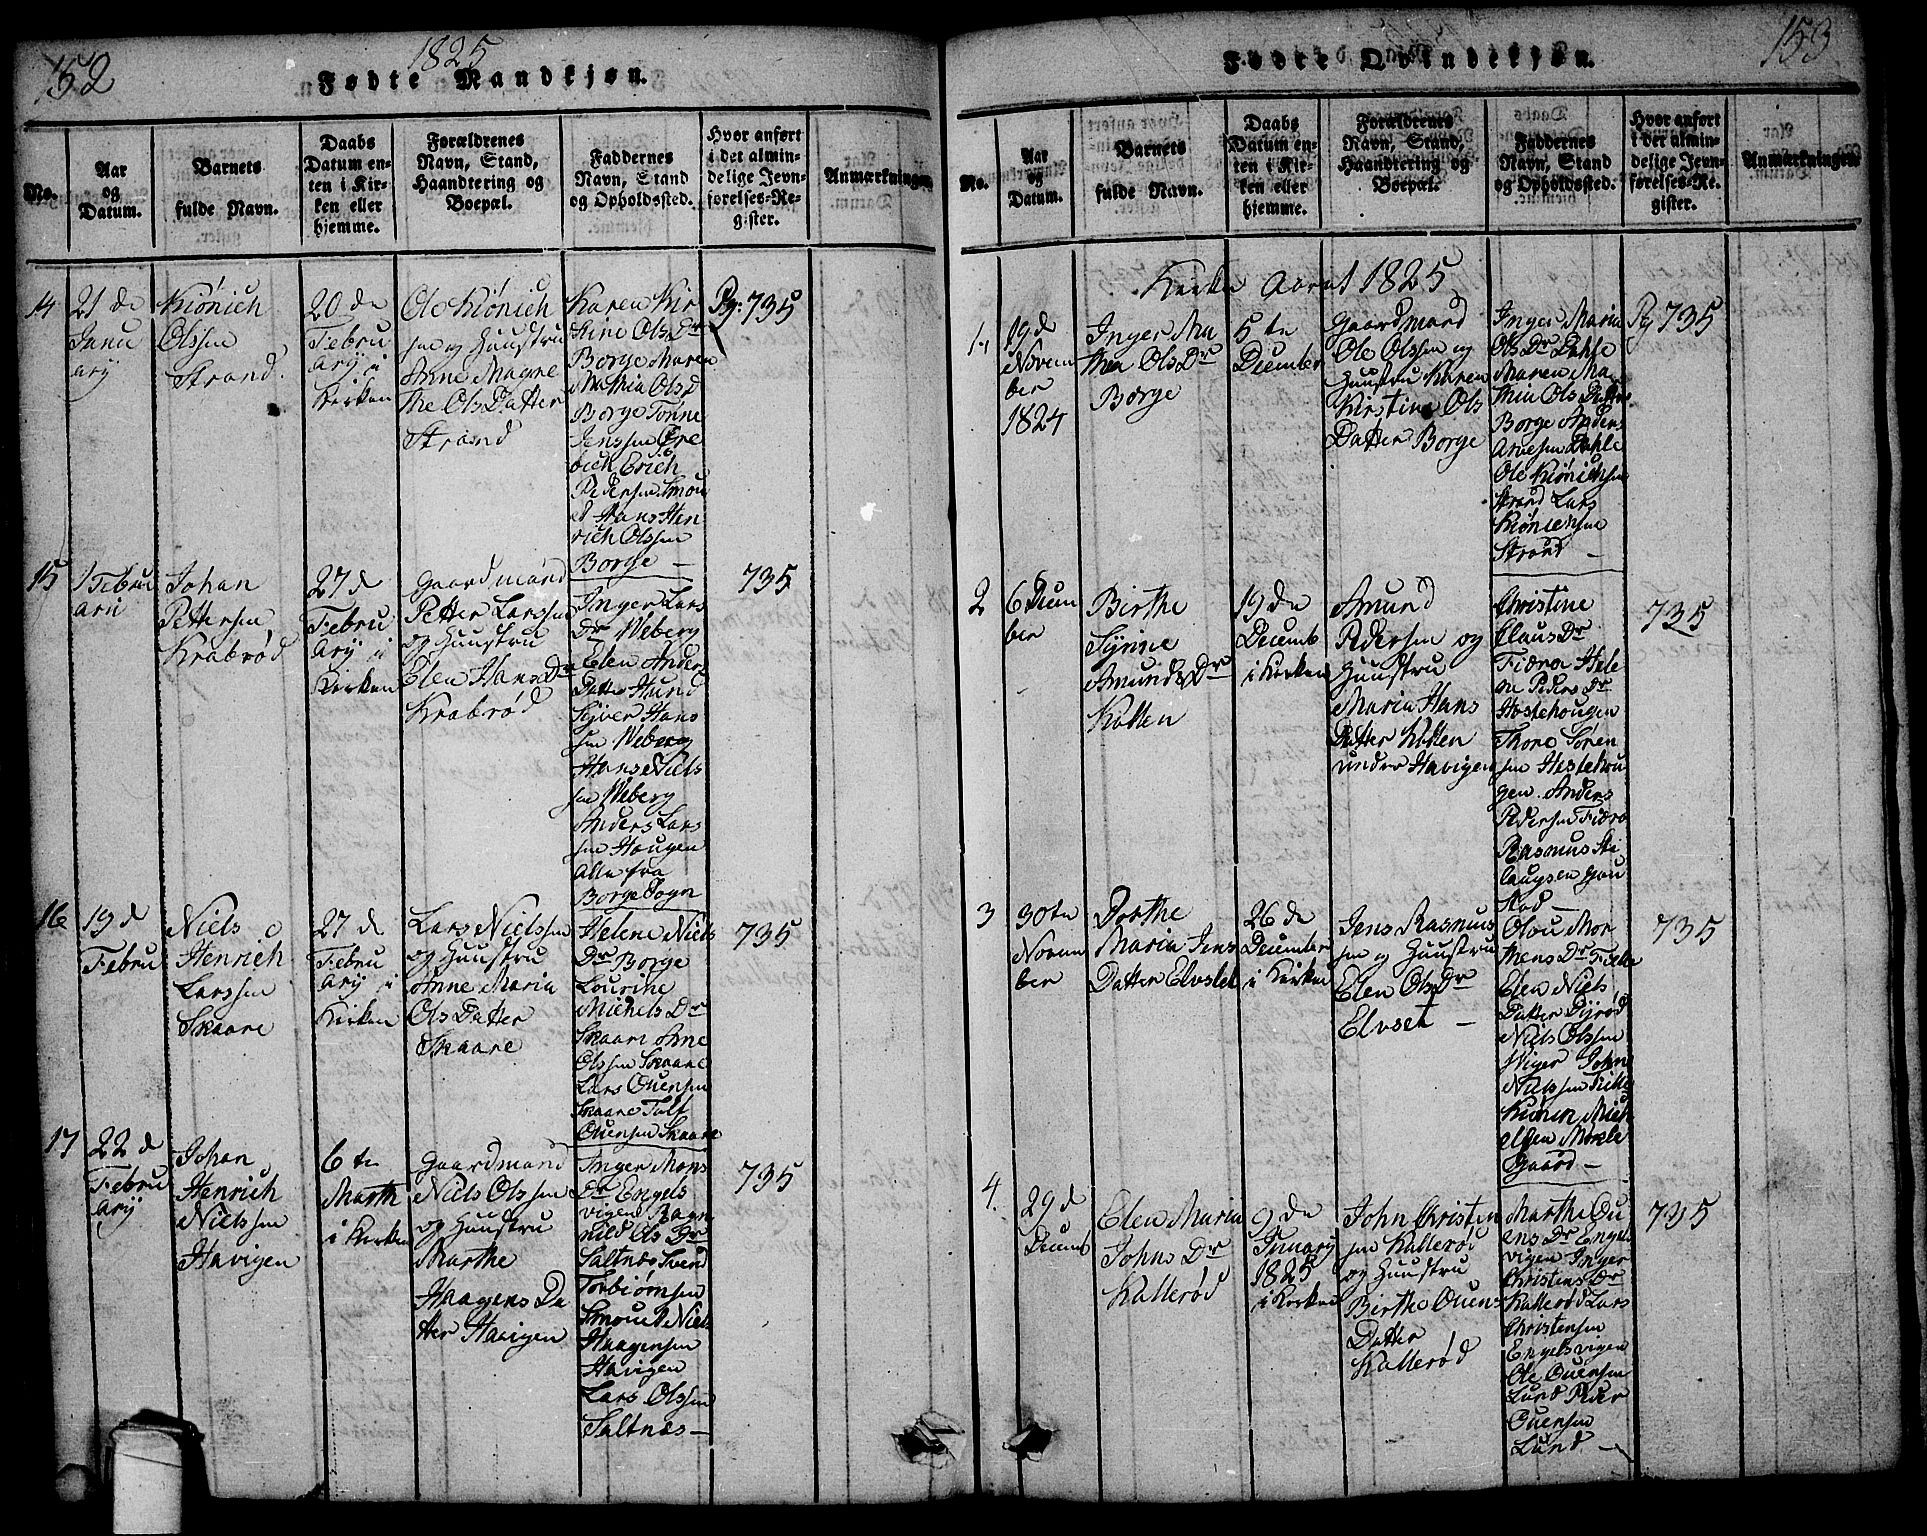 152
1825
Fødte Mandkjøn.
No.
Aar
og
Datum.
Barnets
fulde Navn.
Daabs
Datum en-
ten i Kir-
ken eller
hjemme.
Forældrenes
Navn, Stand,
Haandtering og
Boepæl.
Faddernes
Navn, Stand
og Opholdssted.
Hvor anført
i det almin-
delige Jevn-
førelses-Re-
gister.
Anmærkninger
14
21 de
Janu
ary
Kiönich
Olssen
Strand
20 de
Febru
ary i
Kirken
Ole Kiönich
sen og Huustru
Anne Magre
the Ols Datter
Strand
Karen Kir
stine Ols Dr
Borge Maren
Mathia Ols D
Borge Tönne
Jenssen Gre
bich Erich
Pedersen Smou
d Hans Hen
rich Olssen
Borge —
Pg: 735
15
1 Febru
arii
Johan
Pettersen
Krabröd
27 d
Febru
ary i
Kirken
Gaardmand
Petter Larssen
og Huustru
Elen Hans Dr
Krabröd
Inger Lars
Dr Weberg
Elen Anders
Datter Hund
Syver Hans
sen Weberg
Hans Niels
sen Weberg
Anders Lars
sen Hougen
alle fra
Borge Sogn
735
16
19 d
Febru
Niels
Henrich
Larssen
Skaare
27 d
Febru
ary i
Kirken
Lars Nielssen
og Huustru
Anne Maria
Ols Datter
Skaare
Helene Niels
Dr Borge
Lourine
Michels Dr
Skaare Arne
Olssen Skaare
Lars Ouensen
Skaare Tolf
Ouensen Skaare
735
17
22 d
Febru
ary
Johan
Henrich
Nielssen
Havigen
6 te
Marth
i Kirken
Gaardmand
Niels Olssen
og Huustru
Marthe
Haagens Da
tter Haavigen
Inger Mons
Dr Engels
vigen Ragn
hild Ols Dr
Saltnæs Svend
Torbiörnsen
Smoued Niels
Haagensen
Havigen
Lars Olssen
Saltnæs —
735
153
Fødte Qvindekjøn.
No.
Aar
og
Datum.
Barnets
fulde Navn.
Daabs
Datum en-
ten i Kir-
ken eller
hjemme.
Forældrenes
Navn, Stand,
Haandtering og
Boepæl.
Faddernes
Navn, Stand
og Opholdssted.
Hvor anført
i det almin-
delige Jevn-
førelses-Re-
gister.
Anmærkninger.
Kirke Aaret 1825
1.
19 d
Novem
ber
1824
Inger Ma
thea Ols Dr
Borge
5 te
December
Gaardmand
Ole Olssen og
Huustru Karen
Kirstine Ols
Datter Borge
Inger Maria
Ols Dr Dahle
Maren Ma
thia Ols Datter
Borge Anders
Arnesen Dahle
Ole Kiönichsen
Strand Lars
Kiönichsen
Strand —
Pg 735
2
6 Decem
ber
Birthe
Syrine
Amunds Dr
Kolten
19 de
Decemb
i Kirken
Amund
Pedersen og
Huustru
Maria Hans
Datter Kolten
under Havigen
Christine
Claus Dr
Fiæra Hele
ne Peders Dr
Hestehougen
Thore Sören
sen Hestehou
gen Anders
Pedersen Fiæra
Rasmus
735
3
30 te
Novem
ber
Dorthe
Maria Jens
Datter Elvslet
26 de
December
i Kirken
Jens Rasmus
sen og Huustru
Elen Ols Dr
Elvset —
Olou Mor
thens Dr
Elen Niels
Datter Dyröd
Niels Olssen
Wiger John
Nielssen
Mich
elsen
Gaard —
735
4.
29 d
Decemb
Elen Maria
Johns Dr
Kallerød
9 de
January
1825
i Kirken
John Christen
sen Kallerød
og Huustru
Birthe Ouens
Datter
Kallerød
Marthe Ou
ens Dr Engels
vigen Inger
Christens Dr
Kallerød Lars
Christensen
Engelsvigen
Ole Ouensen
Lund Peder
Ouensen
Lund —
735